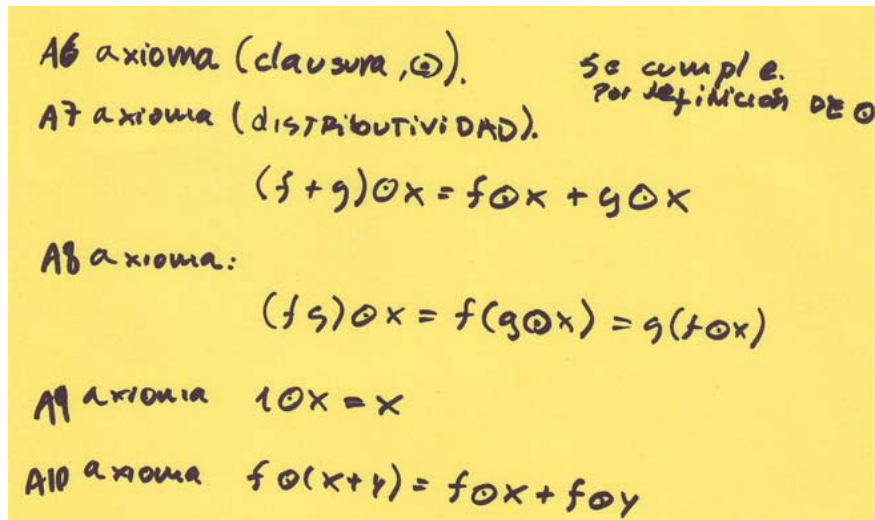 A6 axioma (clausura, ⊙). Se cumple.
Por definición DE ⊙
A7 axioma (DISTRIBUTIVIDAD).
(f+g)⊙x = f⊙x + g⊙x
A8 axioma:
(fg)⊙x = f(g⊙x) = g(f⊙x)
A9 axioma 1⊙x = x
A10 axioma f⊙(x+y) = f⊙x + f⊙y